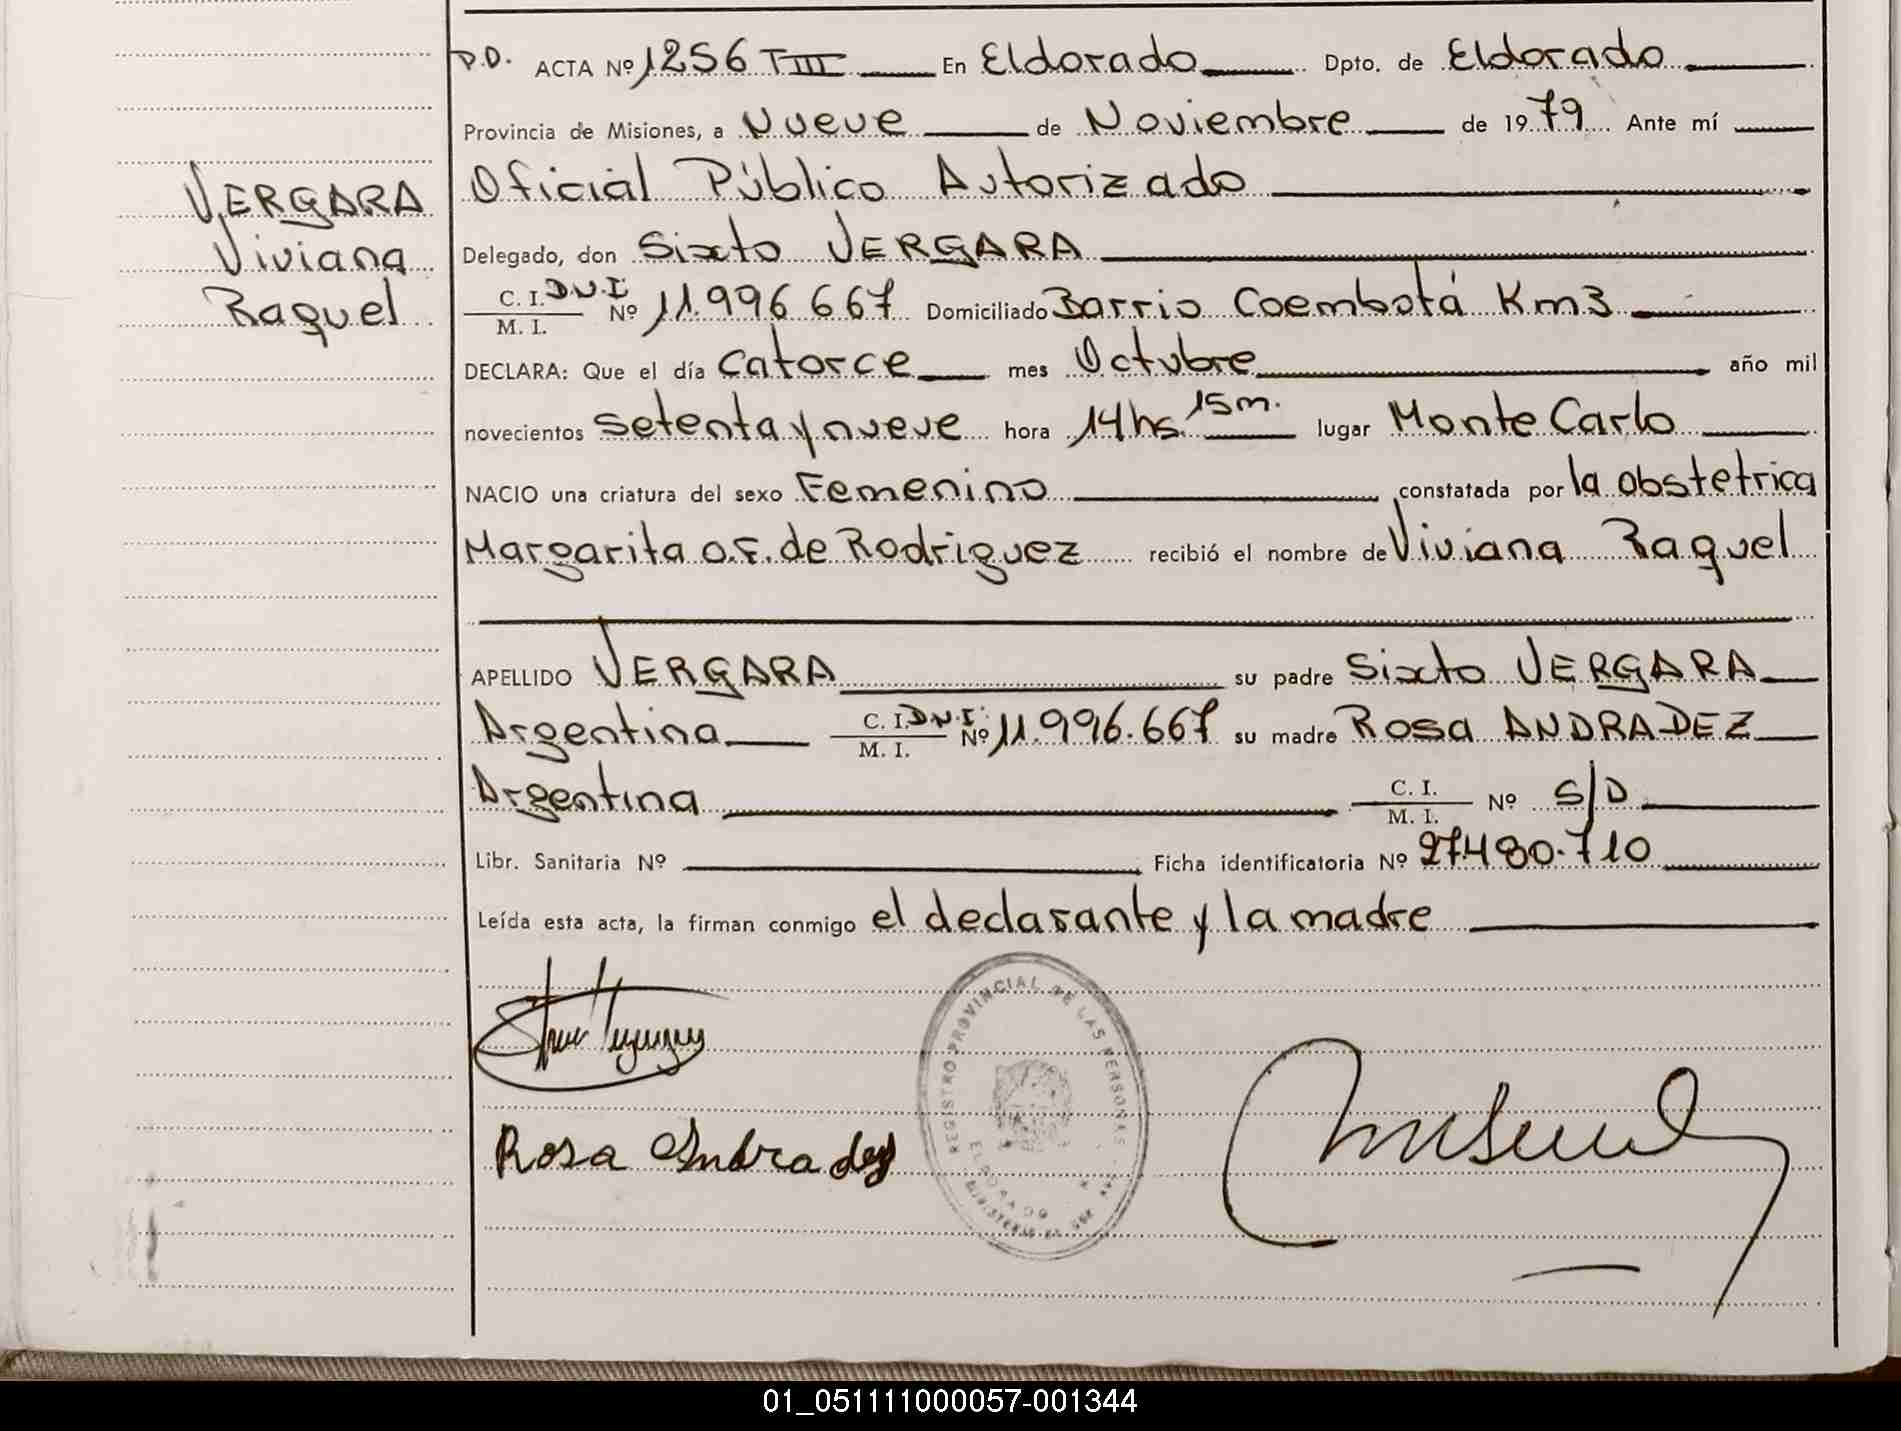 P.D. ACTA Nº 1256 TIII En Eldorado Dpto. de Eldorado
Provincia de Misiones, a Nueve de Noviembre de 1979 Ante mí
Oficial Público Autorizado
VERGARA
Viviana
Raquel
Delegado, don Sixto VERGARA
C. I. D.N.I
M. I. Nº 11.996.667 Domiciliado Barrio Coembotá Km3
DECLARA: Que el día catorce mes Octubre año mil
novecientos setenta y nueve hora 14hs. 15m. lugar Monte Carlo
NACIO una criatura del sexo Femenino constatada por la obstetrica
Margarita O.F. de Rodriguez recibió el nombre de Viviana Raquel
APELLIDO VERGARA su padre Sixto VERGARA
Argentina C. I. D.N.I. M. I. Nº 11.996.667 su madre Rosa ANDRADEZ
Argentina C. I. M. I. Nº S/D
Libr. Sanitaria Nº Ficha identificatoria Nº 27.480.710
Leída esta acta, la firman conmigo el declarante y la madre
REGISTRO PROVINCIAL DE LAS PERSONAS
ELDORADO
MINISTERIO DE
Rosa Andradez
01_051111000057-001344